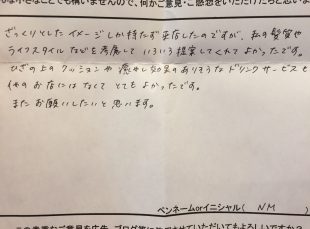 んな小さなことでも構いませんので、何かご意見・ご感想をいただけたらと思いま
ざっくりとしたイメージしか持たず来店したのですが、私の髪質や
ライフスタイルなどを考慮していろいろ提案してくれてよかったです。
ひざの上のクッションや癒やし効果のありそうなドリンクサービスも
他のお店にはなくてとてもよかったです。
またお願いしたいと思います。
ペンネームorイニシャル( NM )